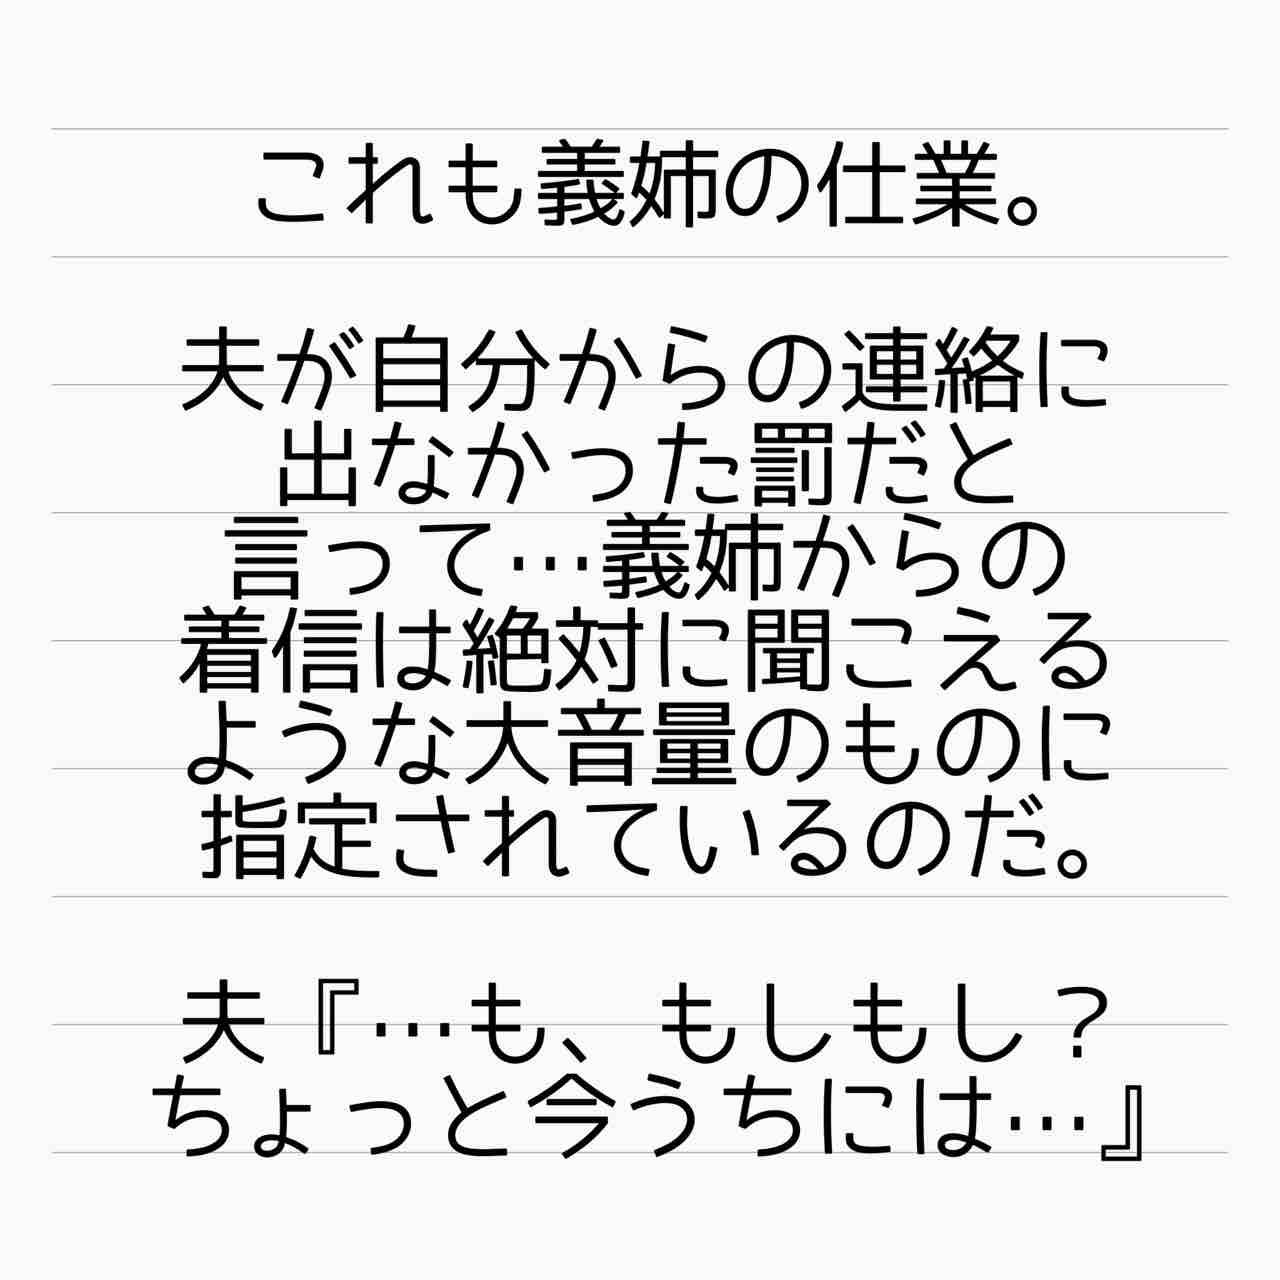 これも義姉の仕業。
夫が自分からの連絡に
出なかった罰だと
言って…義姉からの
着信は絶対に聞こえる
ような大音量のものに
指定されているのだ。
夫『…も、もしもし？
ちょっと今うちには…』